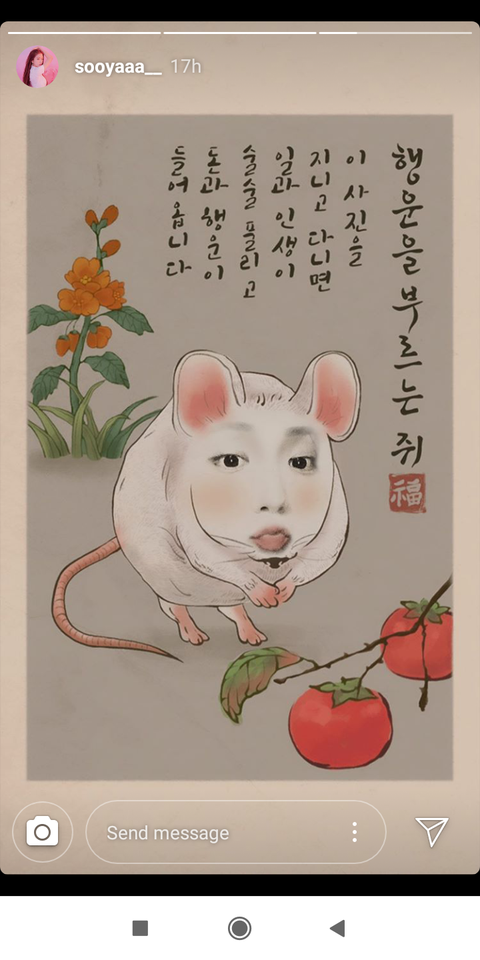 sooyaaa__ 17h
행운을 부르는 쥐
福
이 사진을
지니고 다니면
일과 인생이
술술 풀리고
돈과 행운이
들어 옵니다
Send message